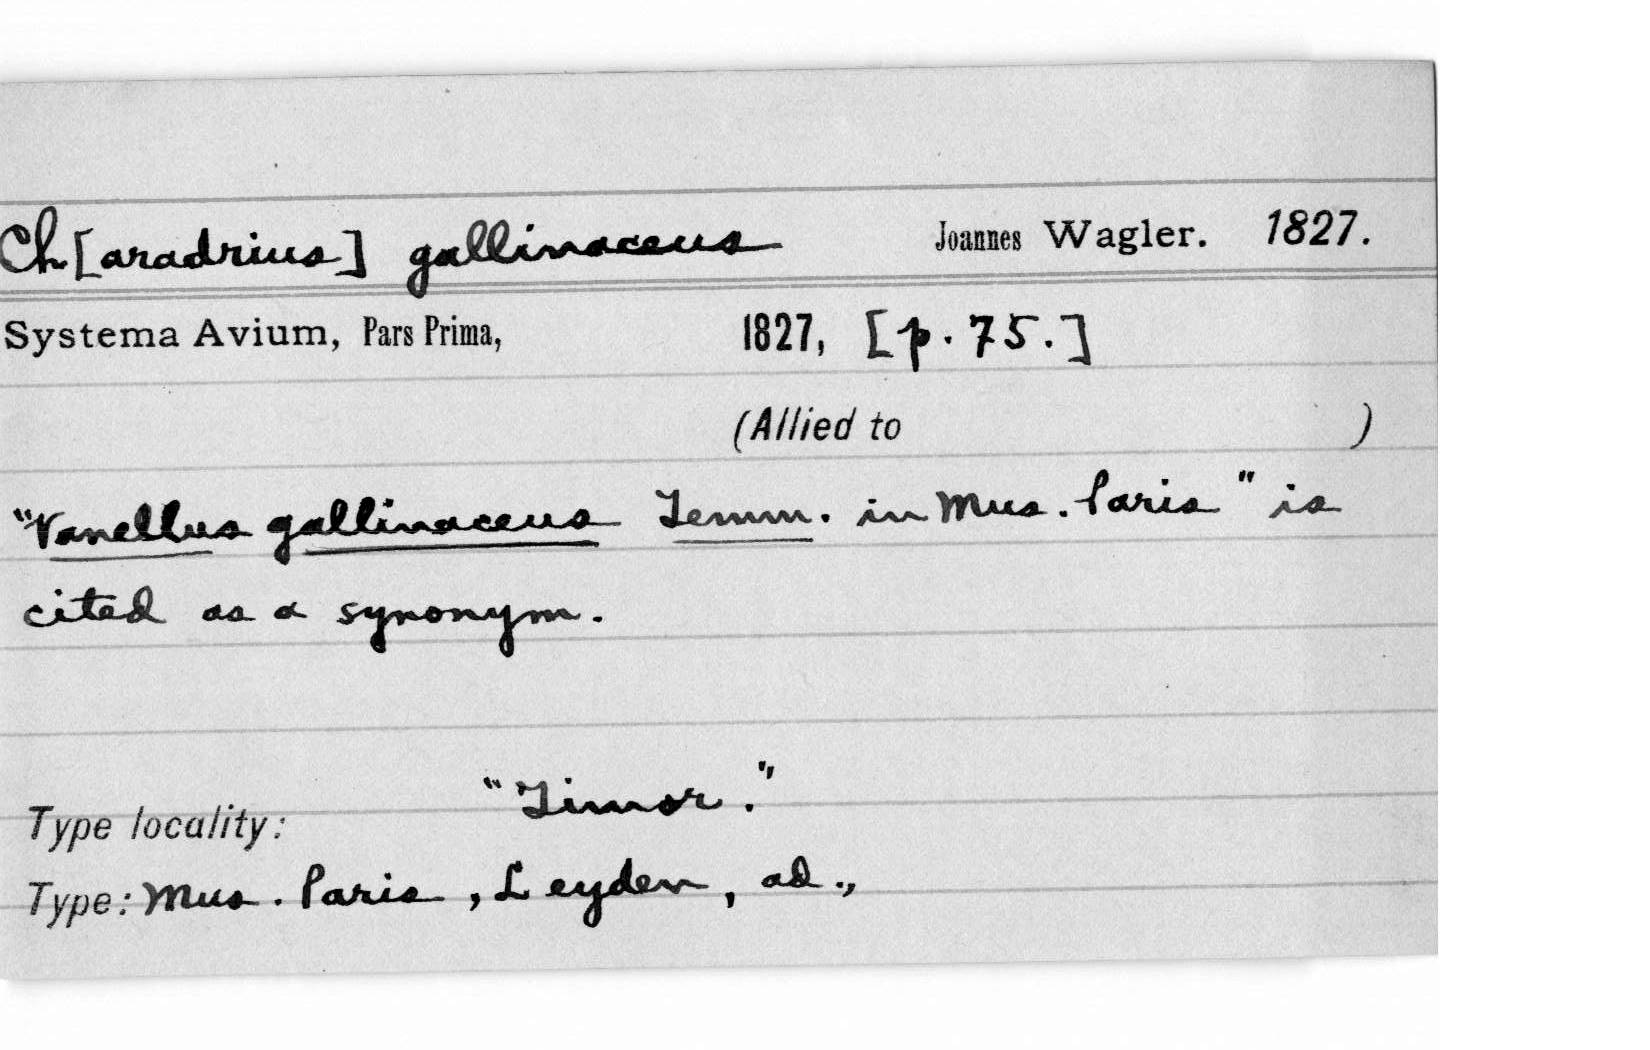 Ch[aradrius] gallinaceus Joannes Wagler. 1827.
Systema Avium, Pars Prima, 1827, [p. 75.]
(Allied to )
"Vanellus gallinaceus Temm. in Mus. Paris" is
cited as a synonym.
Type locality: "Timor."
Type: Mus. Paris, Leyden, ad.,